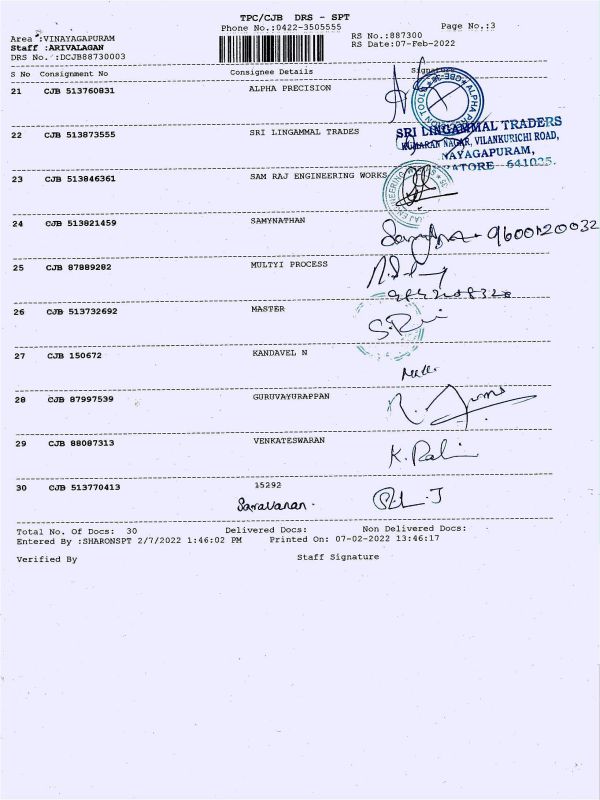 TPC/CJB DRS - SPT
Phone No.:0422-3505555 Page No.:3
Area :VINAYAGAPURAM RS No.:887300
Staff :ARIVALAGAN RS Date:07-Feb-2022
DRS No. :DCJB88730003
S No Consignment No Consignee Details Signature
21 CJB 513760831 ALPHA PRECISION
22 CJB 513873555 SRI LINGAMMAL TRADES
SRI LINGAMMAL TRADERS
KUMARAN NAGAR, VILANKURICHI ROAD,
NAYAGAPURAM,
641035.
23 CJB 513846361 SAM RAJ ENGINEERING WORKS
24 CJB 513821459 SAMYNATHAN
25 CJB 87889282 MULTYI PROCESS
26 CJB 513732692 MASTER
27 CJB 150672 KANDAVEL N
28 CJB 87997539 GURUVAYURAPPAN
29 CJB 88087313 VENKATESWARAN
30 CJB 513770413 15292
Saravanan.
Total No. Of Docs: 30 Delivered Docs: Non Delivered Docs:
Entered By :SHARONSPT 2/7/2022 1:46:02 PM Printed On: 07-02-2022 13:46:17
Verified By Staff Signature